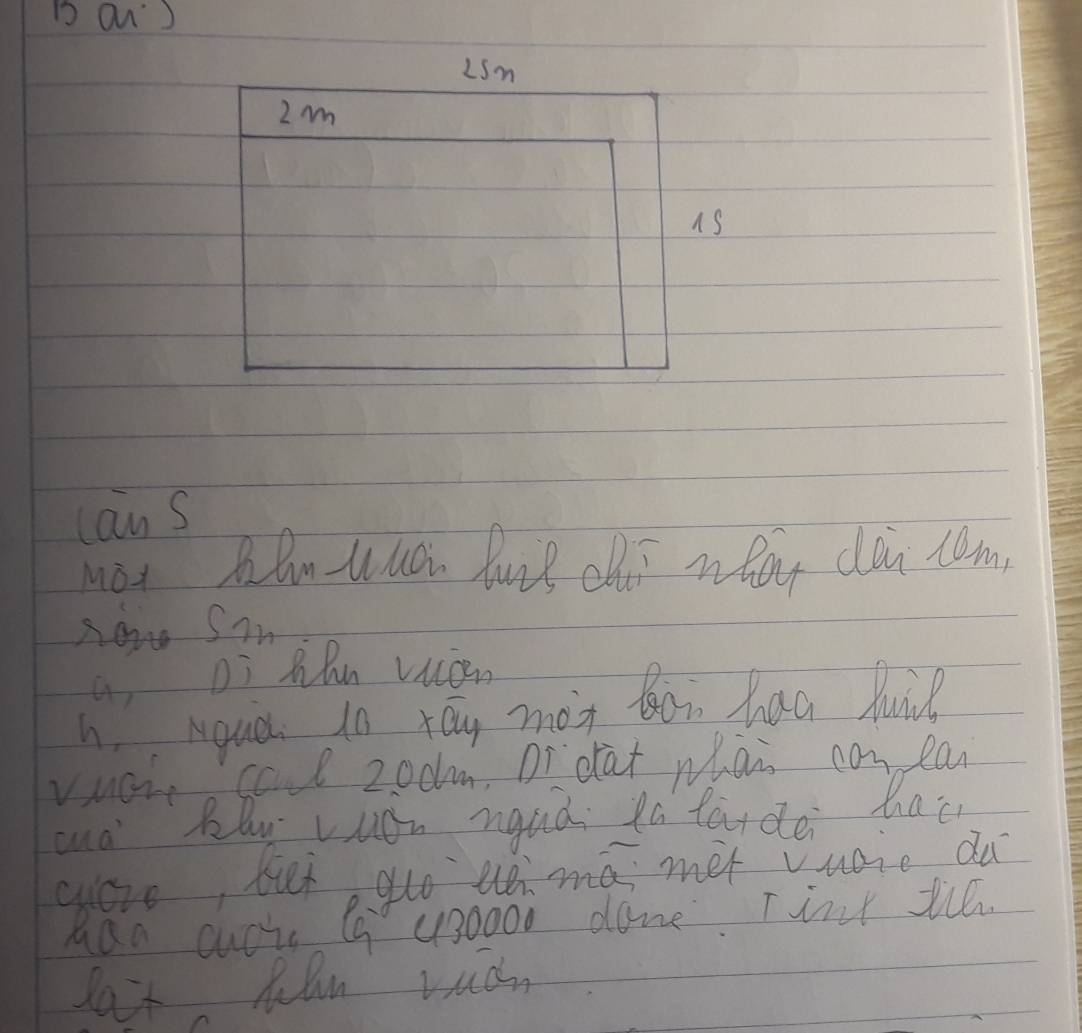 Bài 5
25m
2m
15
Câu 5
Một khu vườn hình chữ nhật dài 10m,
rộng 5m
a, DT khu vườn
b, Người ta xây một bồn hoa hình
vuông cạnh 20dm. DT đất phần còn lại
của khu vườn người ta lát đá hoa
cương, biết giá tiền mỗi mét vuông đá
hoa cương là 430000 đồng. Tính tiền
lát khu vườn.